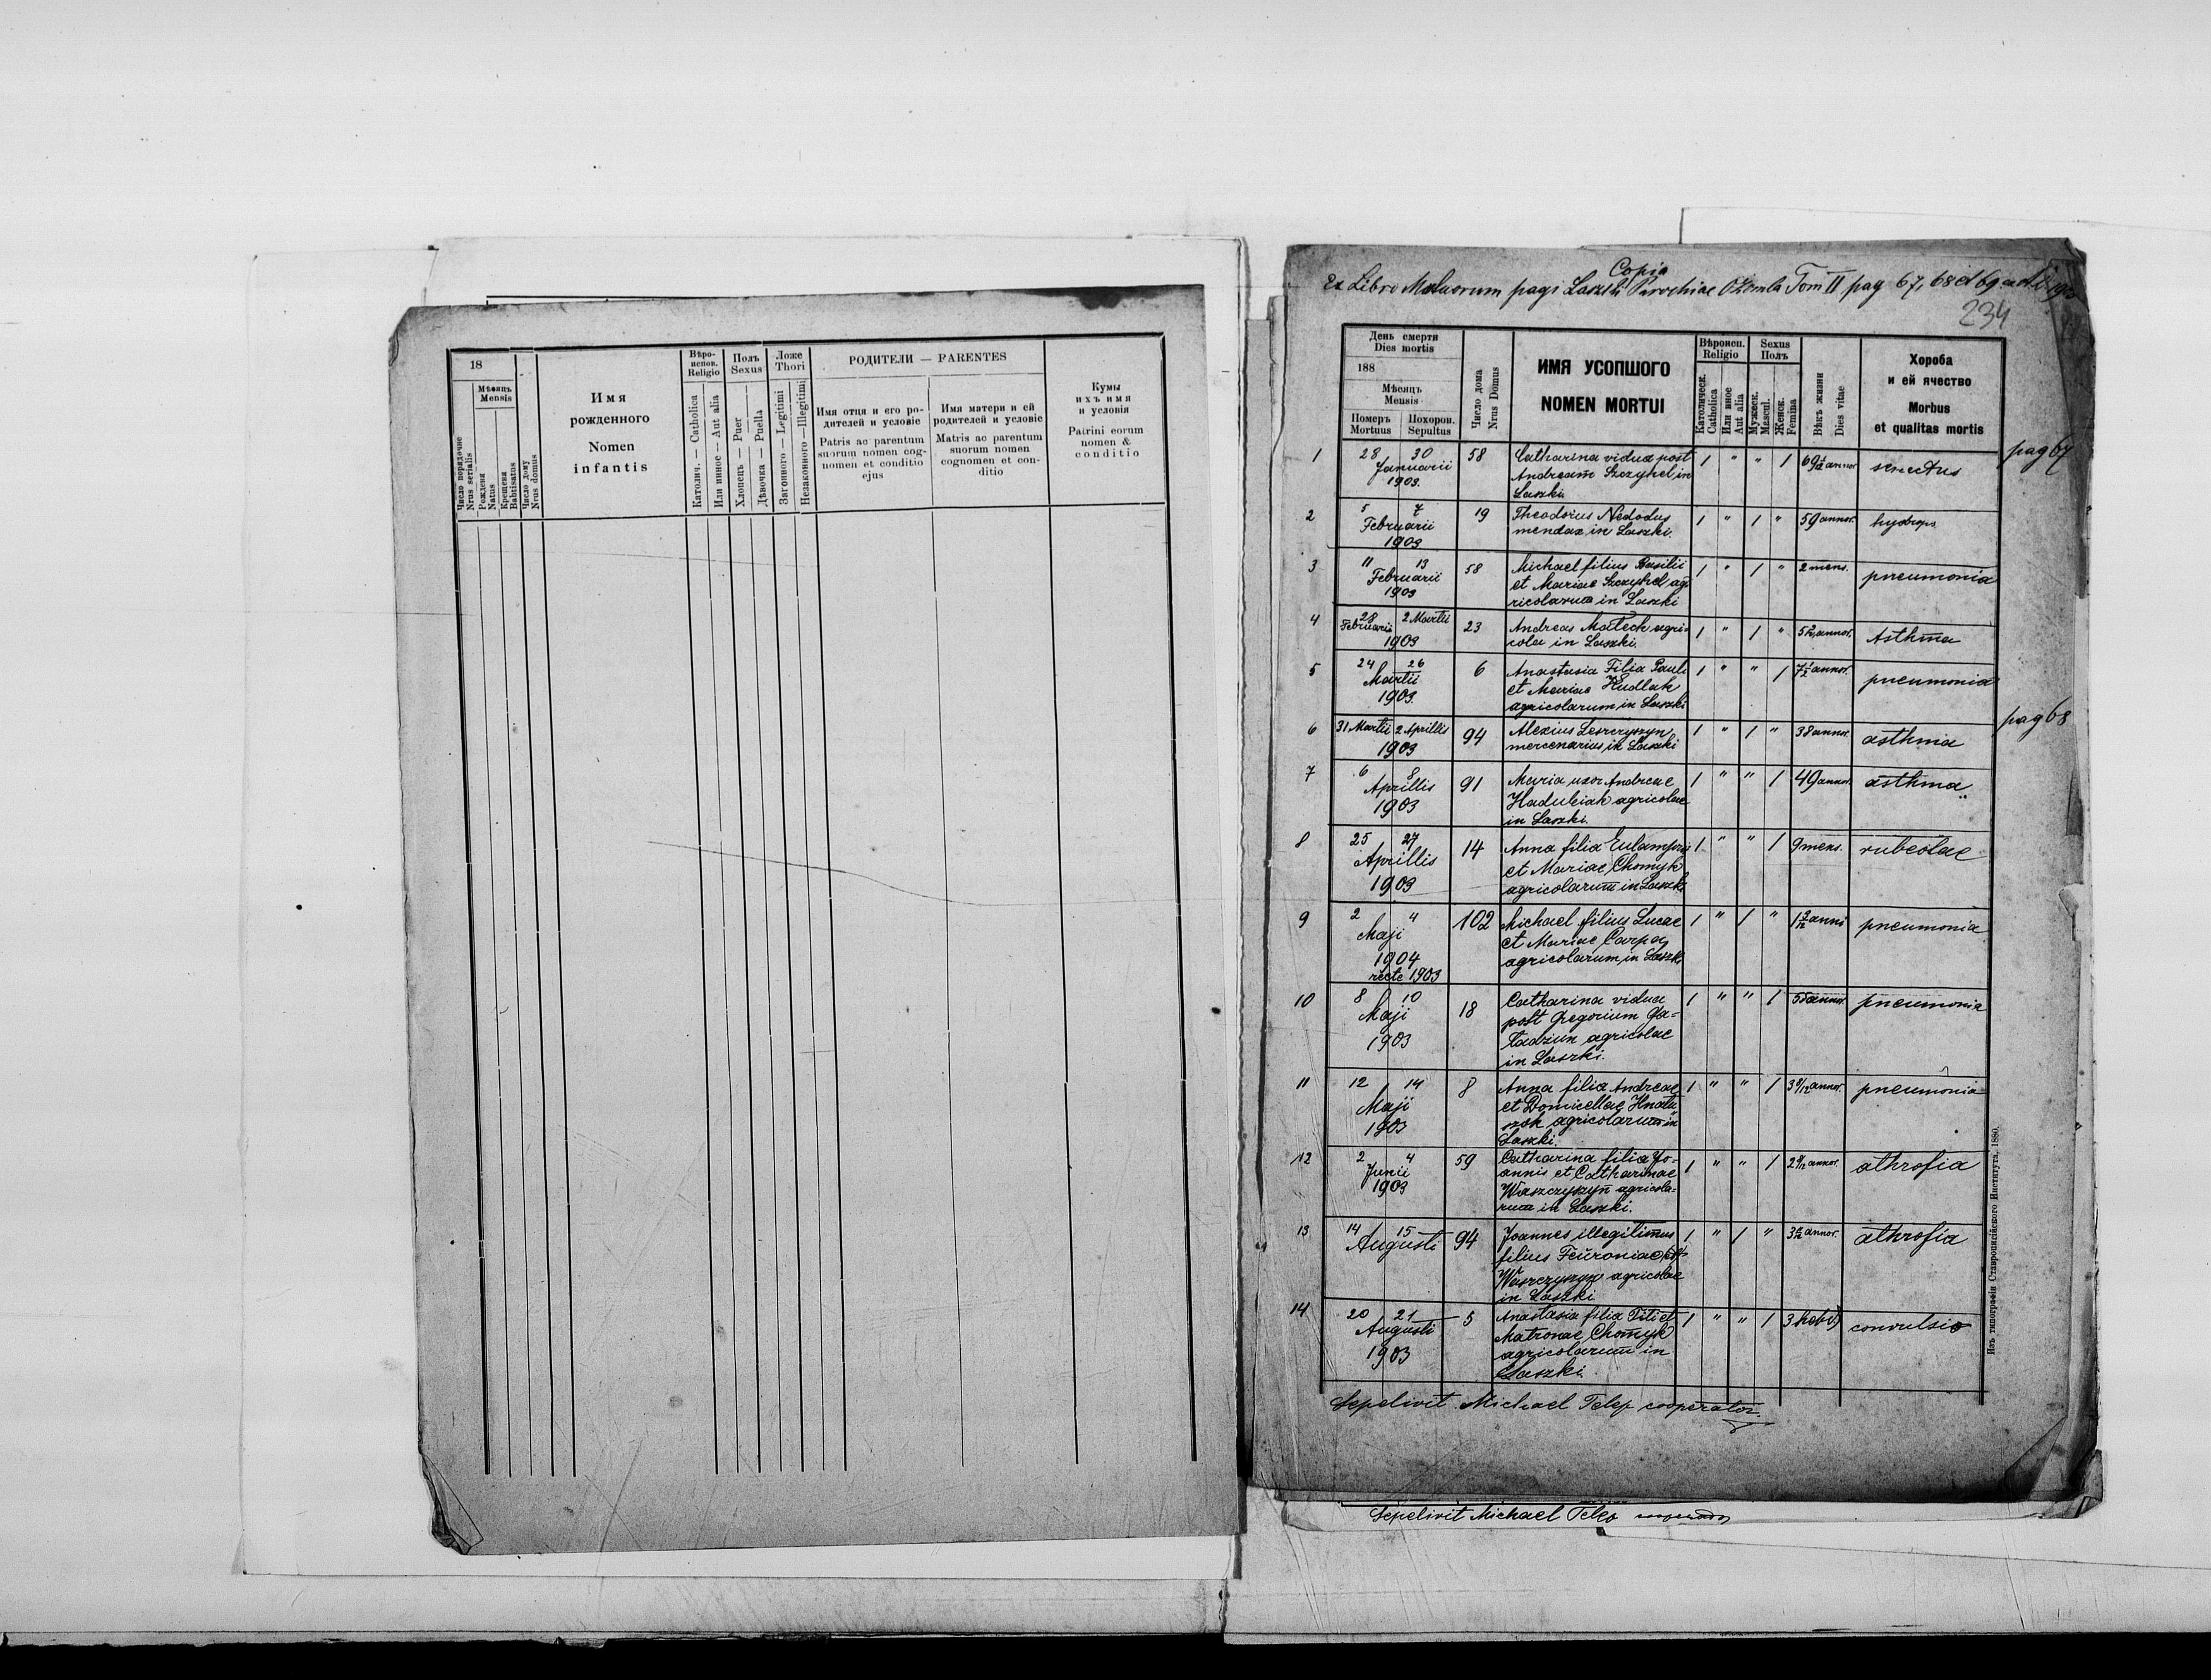 18
Мѣсяцъ
Mensis
Число порядочне
Nrus serialis
Рождена
Natus
Крещена
Babtisatus
Число дому
Nrus domus
Имя
рожденного
Nomen
infantis
Вѣро-
испов.
Religio
Католич. — Catholica
Или инное — Aut alia
Полъ
Sexus
Хлопецъ — Puer
Дѣвочка — Puella
Ложе
Thori
Законного — Legitimi
Незаконного — Illegitimi
РОДИТЕЛИ — PARENTES
Имя отця и его ро-
дителей и условіе
Patris ac parentum
suorum nomen cog-
nomen et conditio
ejus
Имя матери и ей
родителей и условіе
Matris ac parentum
suorum nomen
cognomen et con-
ditio
Кумы
ихъ имя
и условія
Patrini eorum
nomen &
conditio
Copia
Ex Libro Mortuorum pagi Laszki Parochiae Ożomla Tom II pag 67, 68 et 69
234
День смерти
Dies mortis
188
Мѣсяцъ
Mensis
Померъ
Mortuus
Похорон.
Sepultus
Число дома
Nrus Domus
ИМЯ УСОПШОГО
NOMEN MORTUI
Вѣроисп.
Religio
Католическ.
Catholica
Или вное
Aut alia
Sexus
Полъ
Мужеск.
Mascul.
Женск.
Femina
Вѣкъ жизни
Dies vitae
Хороба
и ей ячество
Morbus
et qualitas mortis
pag 67
1 28 30 Januarii 1903. 58 Catharina vidua post 1 " " 1 69 annor senectus
Andream Szczyhel in
Laszki
2 5 7 Februarii 1903 19 Theodorus Nedodus 1 " 1 " 59 annor. hydrops
mendax in Laszki.
3 11 13 Februarii 1903 58 Michael filius Basilii 1 " 1 " 2 mens. pneumonia
et Mariae Szczyhel ag-
ricolarum in Laszki
4 28 Februarii 2 Martii 1903 23 Andreas Mateck agri- 1 " 1 " annor. Asthma
cola in Laszki.
5 24 26 Martii 1903. 6 Anastasia Filia Pauli 1 " " 1 7½ annor. pneumonia
et Mariae Hudlak
agricolarum in Laszki
pag 68
6 31 Martii 2 Aprillis 1903 94 Alexius Leszczyszyn 1 " 1 " 38 annor. asthma
mercenarius in Laszki
7 6 8 Aprillis 1903 91 Maria uxor Andreae 1 " " 1 49 annor. asthma
Hadubiak agricolae
in Laszki.
8 25 27 Aprillis 1903 14 Anna filia Eulampii 1 " " 1 9 mens. rubeolae
et Mariae Chomyk
agricolarum in Laszki
9 2 4 Maji 1904 recte 1903 102 Michael filius Lucae 1 " 1 " 1 3/12 anni pneumonia
et Mariae Carpa
agricolarum in Laszki
10 8 10 Maji 1903 18 Catharina vidua 1 " " 1 55 annor. pneumonia
post Gregorium Ga-
tadzun agricolae
in Laszki.
11 12 14 Maji 1903 8 Anna filia Andreae 1 " " 1 3 8/12 annor. pneumonia
et Domicellae Hnatu-
szok agricolarum in
Laszki.
12 2 4 Junii 1903 59 Catharina filia Jo- 1 " " 1 annor. athrofia
annis et Catharinae
Waszczyszyn agricola-
rum in Laszki.
13 14 15 Augusti 94 Joannes illegitimus 1 " 1 " annor. athrofia
filius Feuroniae
Waszczyszyn agricolae
in Laszki
14 20 21 Augusti 1903 5 Anastasia filia Titi et 1 " " 1 3 hebd convulsio
Matronae Chomyk
agricolarum in
Laszki.
Sepelivit Michael Telep cooperator.
Изъ типографія Ставропигійского Института. 1880.
Sepelivit Michael Telep